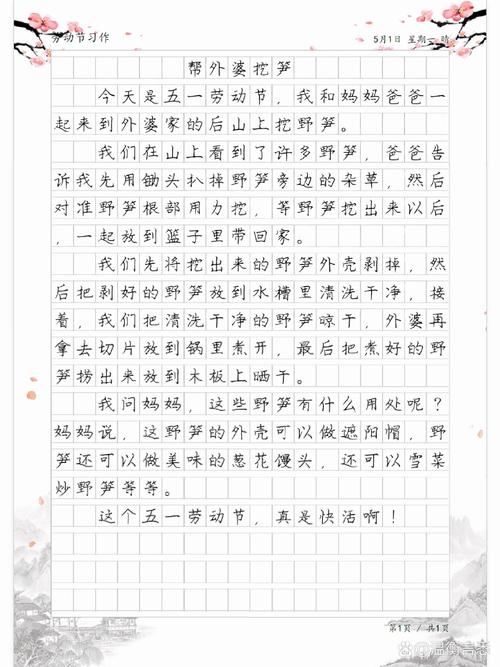 劳动节习作
5月1日 星期一 晴
帮外婆挖笋
今天是五一劳动节，我和妈妈爸爸一
起来到外婆家的后山上挖野笋。
我们在山上看到了许多野笋，爸爸告
诉我先用锄头扒掉野笋旁边的杂草，然后
对准野笋根部用力挖，等野笋挖出来以后
，一起放到篮子里带回家。
我们先将挖出来的野笋外壳剥掉，然
后把剥好的野笋放到水槽里清洗干净，接
着，我们把清洗干净的野笋晾干，外婆再
拿去切片放到锅里煮开，最后把煮好的野
笋捞出来放到木板上晒干。
我问妈妈，这些野笋有什么用处呢？
妈妈说，这野笋的外壳可以做遮阳帽，野
笋还可以做美味的葱花馒头，还可以雪菜
炒野笋等等。
这个五一劳动节，真是快活啊！
第1页 / 共1页